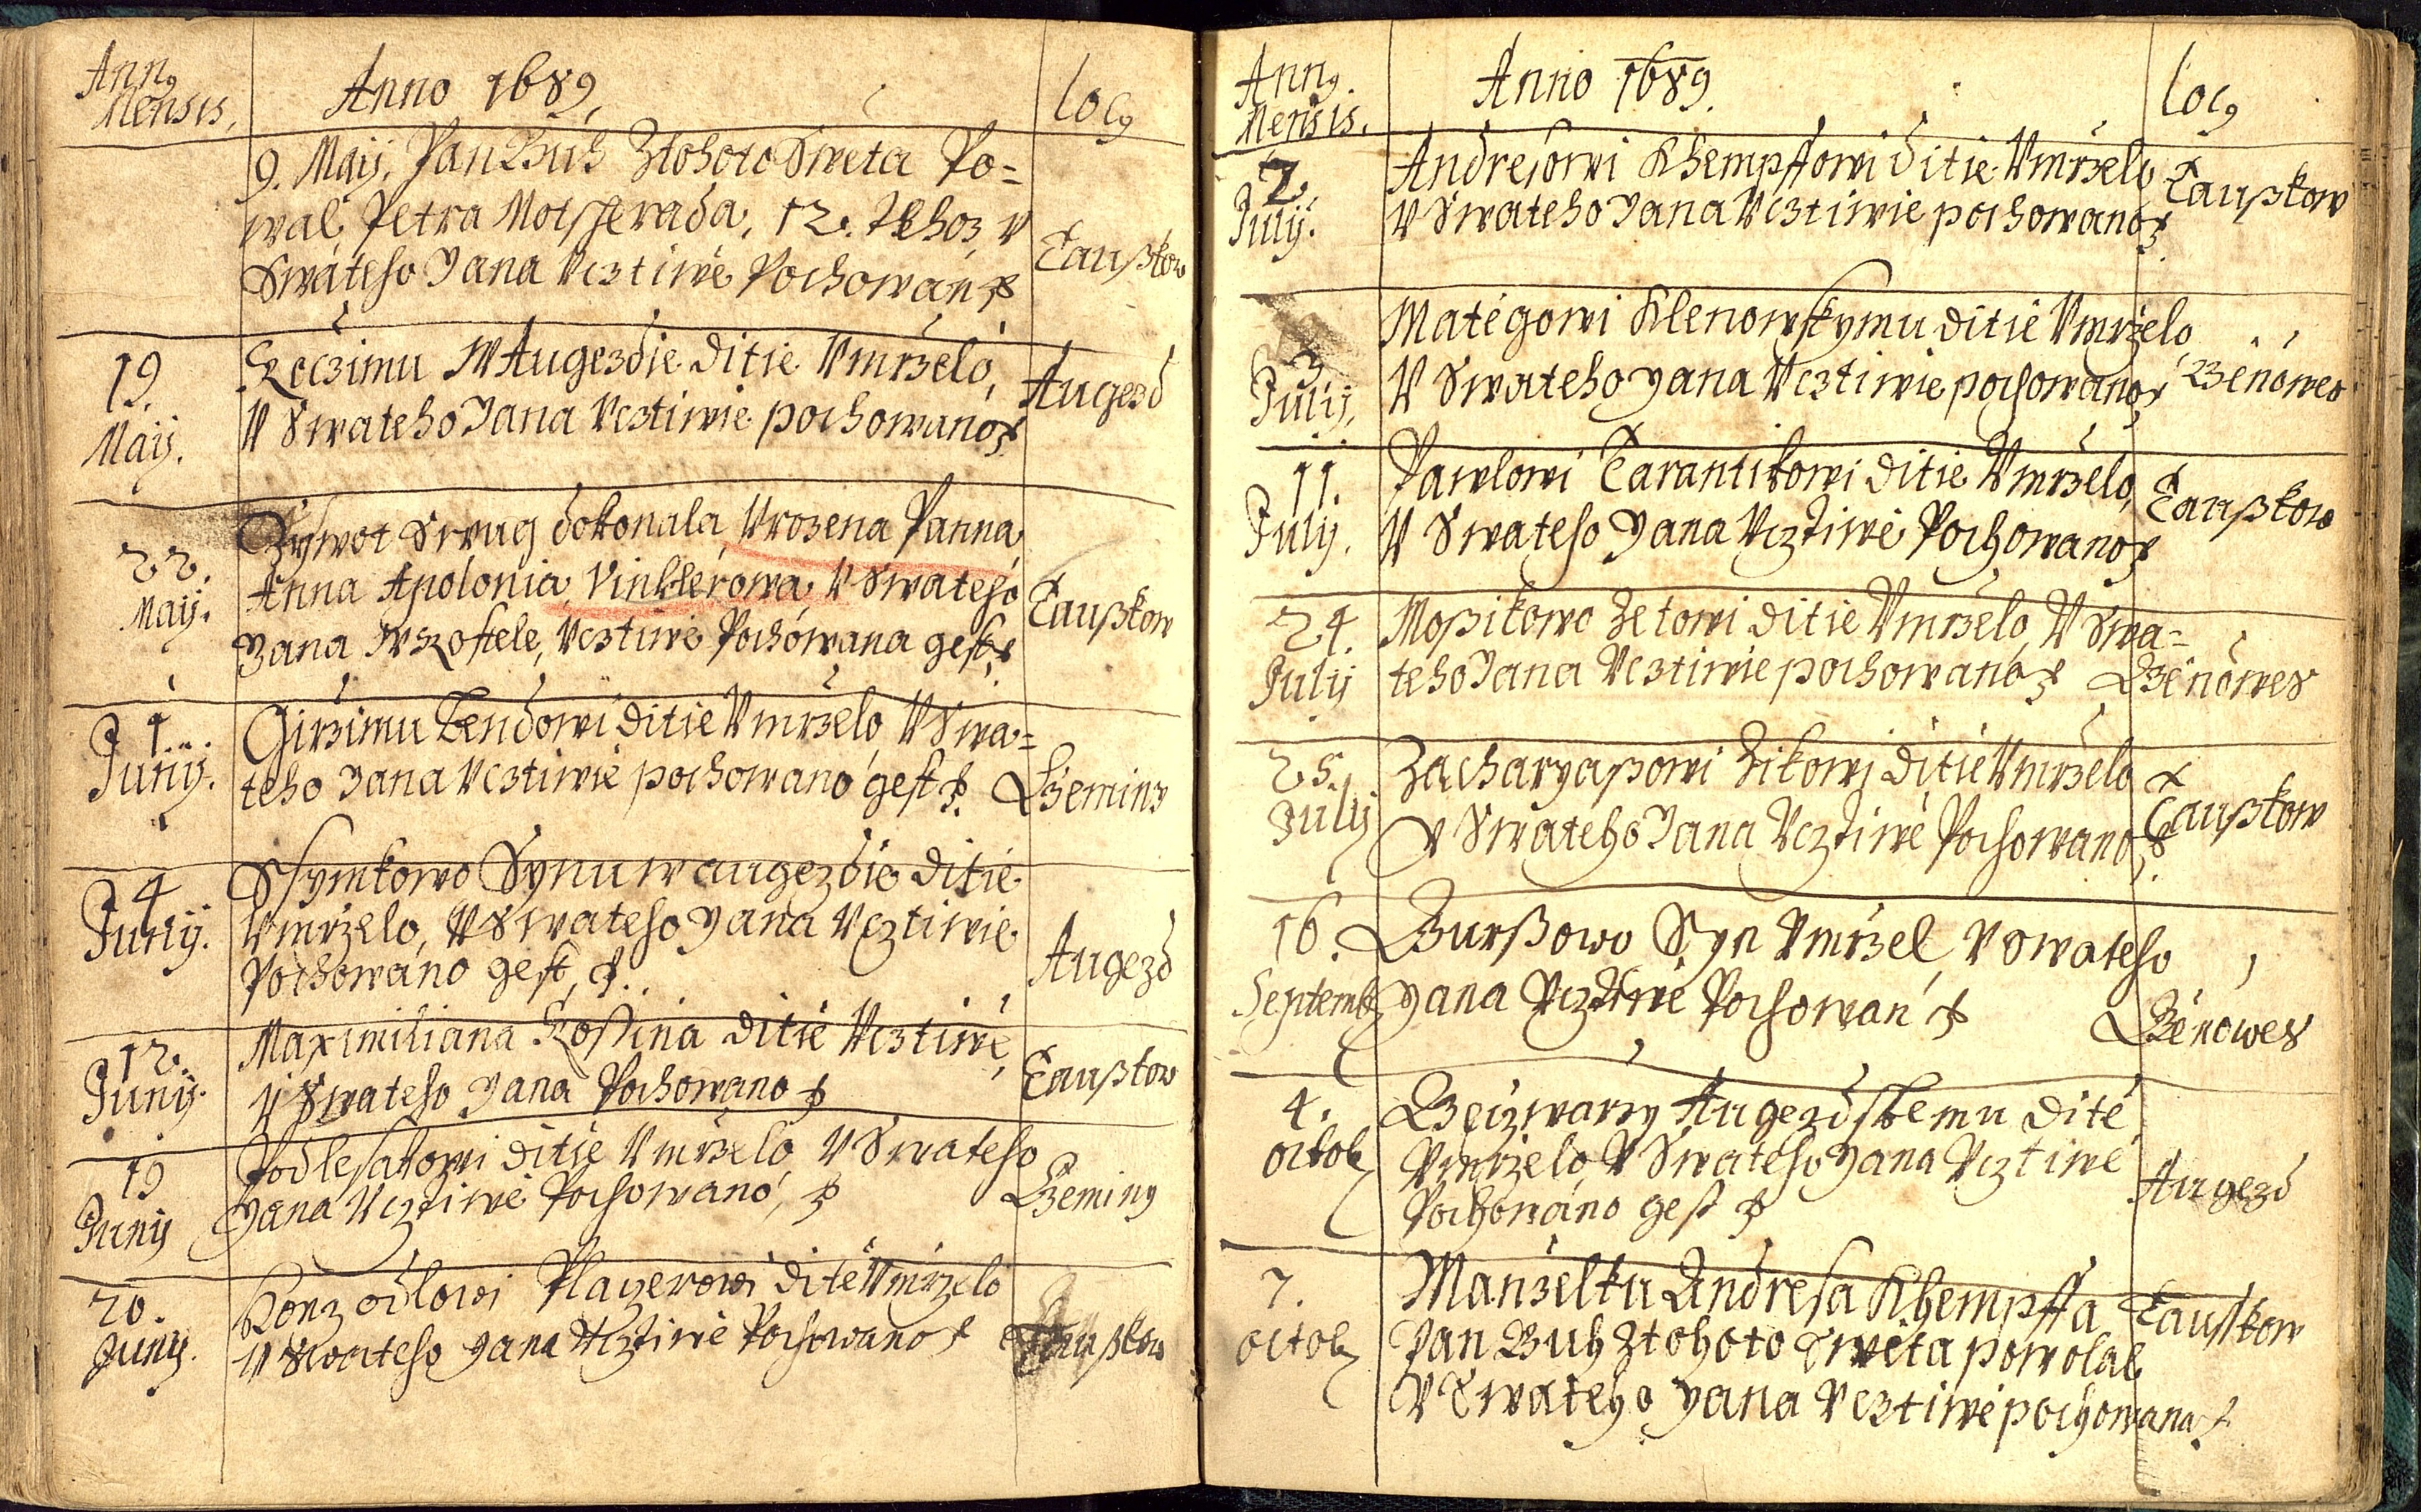 Ann9
Mensis,
Anno 1689,
loc9
9. Maij. Pan Buh Ztohoto Sweta Po=
wal Petra 12. Tehoz V
Swateho Jana Vcztiwě Pochowan
Taußkow
19.
Maij.
W Augezdie ditie Vmrželo,
V Swateho Jana Vcztiwie pochowano
Augezd
22.
Maij.
Žywot Swug dokonala Vrozena Panna
Anna Apolonia Vinklerowa, V Swateho
Yana W kostele, Vcztiwě Pochowana gest
Taußkow
1.
Junij.
Girzimu Bendowi ditie Vmrželo, V Swa=
teho Jana Vcztiwie pochowano gest
Bzeminy
4
Junij.
Ssymkowo Synu w augezdie ditie
Vmrželo, V Swateho Yana Vcztiwie
Pochowano gest
Augezd
12.
Junij.
Maximiliana Kossina ditie Vcztiwě,
V Swateho Yana Pochowano
Taußkow
19
Junij
Podlesakowi ditie Vmrželo, V Swateho
Yana Vcztiwě Pochowano,
Bzeminy
20.
Junij.
Playerowi ditě Vmrželo
V Swateho Yana Vcztiwě Pochowano
Taußkow
Ann9.
Mensis.
Anno 1689.
loc9
2.
Julij.
Andresowi Khempffowi ditie Vmrželo
V Swateho Jana Vcztiwie pochowano
Taußkow
3
Julij.
Matěgowi Klenowskymu ditie Vmrželo
V Swateho Yana Vcztiwie pochowano
Bžěnowes
11.
Julij.
Pawlowi Tarantikowi ditie Vmrželo,
V Swateho Yana Vcztiwě Pochowano
Taußkow
24.
Julij
Moßikowo Zetowi ditie Vmrželo, V Swa=
teho Jana Vcztiwie pochowano
Bžěnowes
25.
Julij
Zacharyaßowi Zikowi ditie Vmrželo
V Swateho Jana Vcztiwě Pochowano
Taußkow
16.
Septemb
Burßowo Syn Vmržel, V Swateho
Yana Vcztiwě Pochowan
Bžěnowes
4.
octob
Augezdskemu ditě
Vmrželo, V Swateho Yana Vcztiwě
Pochowano gest
Augezd
7.
octob
Manzelku Andresa Khempffa
Pan Buh Ztohoto Sweta powolal
V Swateho Yana Vcztiwě pochowana
Tausskow